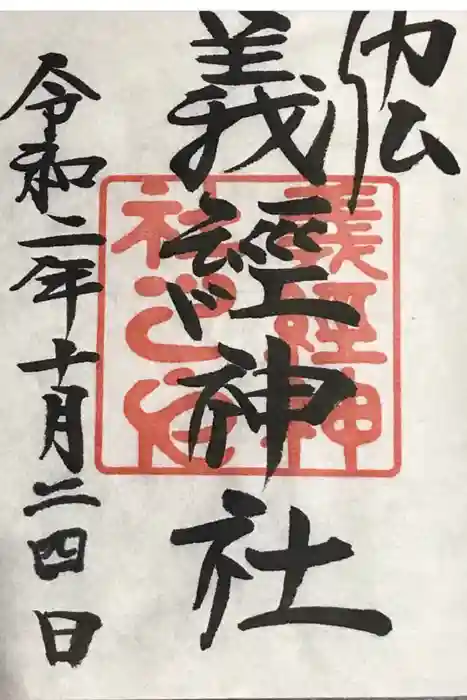 義經神社
義経神
社之印
令和二年十月二四日